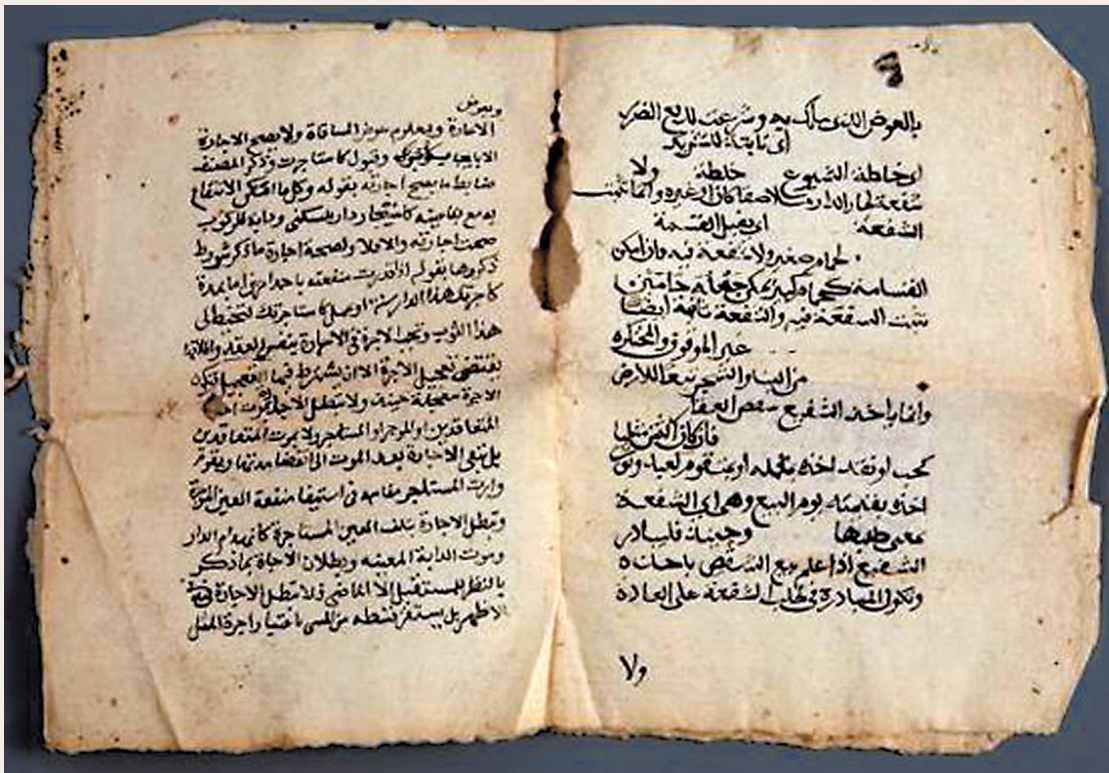 بالعوض الذي ملك به وشرعت لدفع الضرر
أي ثابتة للشريك
او خلطة الشيوع خلطة ولا
شفعة لجار الدار ملاصقا كان او غيره وانما تثبت
الشفعة اي يقبل القسمة
لحمام صغير ولا شفعة فيه فان امكن
انقسامه كحمام كبير يمكن جعله حمامين
تثبت الشفعة فيه والشفعة ثابتة ايضا
غير الموقوف والمحتكره
من البناء والشجر تبعا للارض
وانما ياخذ الشفيع شقص العقار
فان كان الثمن مثليا
كحب او نقد اخذه بمثله او متقوم كعبد وثوب
اخذه بقيمته يوم البيع وهي اي الشفعة
بمعنى طلبها فليبادر
الشفيع اذا علم بيع الشقص باخذه
وتكون المبادرة في طلب الشفعة على العادة
ولا
وبعوض
الاجارة وبمعلوم عوض المساقاة ولا يصح الاجارة
الا بايجاب وقبول كاستاجرت وذكر المصنف
ضابط ما يصح اجارته بقوله وكل ما امكن الانتفاع
به مع بقا عينه كاستيجار دار للسكنى ودابة للركوب
صحت اجارته والا فلا ولصحة اجارة ما ذكر شروط
ذكرها بقوله اذا قدرت منفعته باحد امرين اما بمدة
كاجرتك هذا الدار سنة او عمل كاستاجرتك لتخيط لي
هذا الثوب وتجب الاجرة في الاجارة بنفس العقد واطلاقها
يقتضي تعجيل الاجرة الا ان يشترط فيها التاجيل فتكون
الاجرة مؤجلة حينئذ ولا تبطل الاجارة بموت احد
المتعاقدين او الموجر او المستاجر ولا بموت المتعاقدين
بل تبقى الاجارة بعد الموت الى انقضا مدتها ويقوم
وارث المستاجر مقامه في استيفا منفعة العين الموجرة
وتبطل الاجارة بتلف العين المستاجرة كانهدام الدار
وموت الدابة المعينة وبطلان الاجارة بما ذكر
بالنظر للمستقبل لا الماضي فلا تبطل الاجارة فيه في
الاظهر بل يستقر قسطه من المسمى باعتبار اجرة المثل